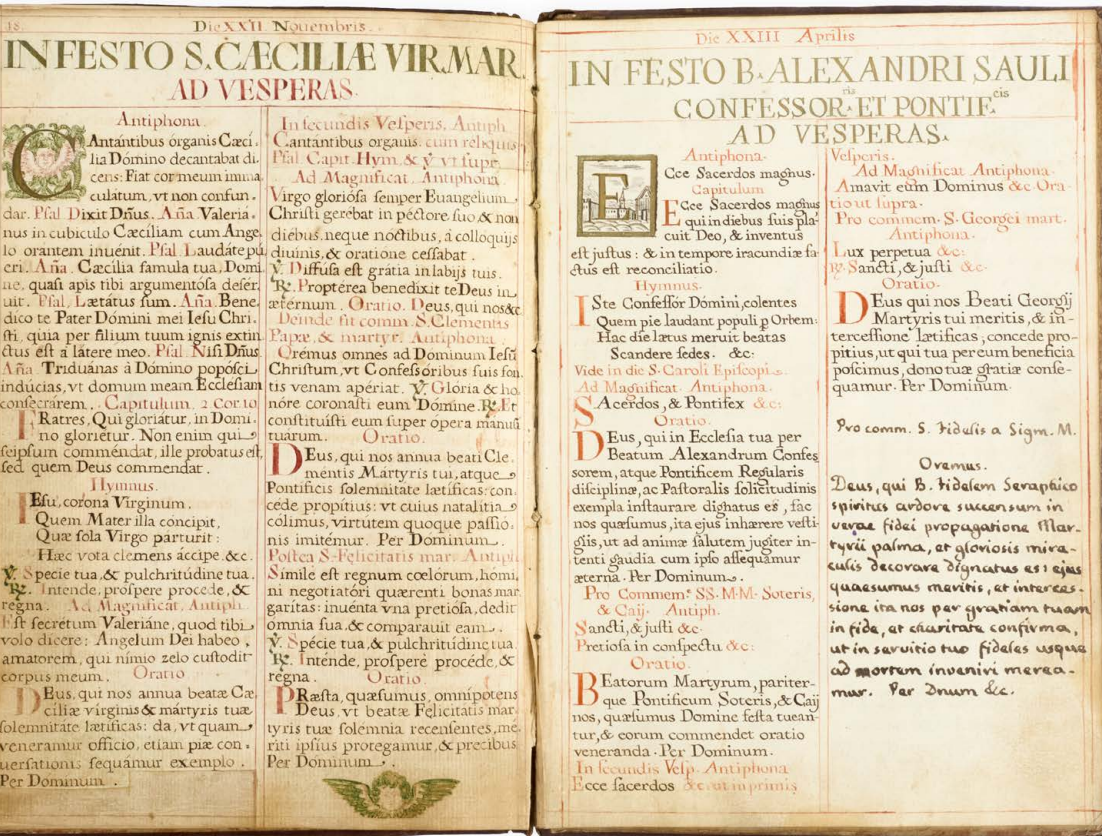 18.
Die XXII Nouembris.
IN FESTO S. CÆCILIÆ VIR. MAR.
AD VESPERAS.
Antiphona.
CAntántibus órganis Cæci-
lia Dómino decantabat di-
cens: Fiat cor meum imma
culátum, vt non confun-
dar. Psal. Dixit Dñus. Aña. Valeria-
nus in cubículo Cæcíliam cum Ange
lo orantem inuénit. Psal. Laudáte pu
eri. Aña. Cæcília famula tua, Domi
ne, quasi apis tibi argumentósa déser
uit. Psal. Lætátus sum. Aña. Bene
díco te Pater Dómini mei Iesu Chri-
sti, quia per filium tuum ignis extin
ctus est a látere meo. Psal. Nisi Dñus
Aña. Triduánas à Dómino popósci
indúcias, vt domum meam Ecclesiam
consecrárem. Capitulum. 2 Cor. 10
FRatres, Qui gloriátur, in Domi-
no glorietur. Non enim qui
seipsum comméndat, ille probatus est,
sed quem Deus commendat.
Hymnus.
IEsu, corona Virginum.
Quem Mater illa concipit,
Quæ sola Virgo parturit:
Hæc vota clemens áccipe. &c.
℣. Specie tua, & pulchritúdine tua.
℟. Intende, prospere procede, &
regna. Ad Magnificat. Antiph.
Est secrétum Valeriáne, quod tibi
volo dícere; Angelum Dei habeo
amatorem, qui nímio zelo custodit
corpus meum. Oratio
DEus, qui nos annua beatæ Cæ-
ciliæ virginis & mártyris tuæ
solemnitáte lætificas: da, vt quam
veneramur officio, etiam piæ con-
uersationis sequámur exemplo.
Per Dominum.
In secundis Vesperis. Antiph.
Cantantibus organis. cum reliquis
Psal. Capit. Hym. & ℣. vt supr.
Ad Magnificat. Antiphona.
Virgo gloriósa semper Euangelium
Christi gerébat in péctore suo, & non
diébus. neque nóctibus, à collóquijs
diuínis, & oratióne cessábat.
℣. Diffúsa est grátia in labijs tuis.
℟. Propterea benedíxit te Deus in
ætérnum. Oratio. Deus, qui nos &c.
Deinde fit comm. S. Clementis
Papæ, & martyr. Antiphona.
Orémus omnes ad Dominum Iesū
Christum, vt Confessóribus suis fon
tis venam apériat. ℣. Glória & ho
nóre coronásti eum Dómine. ℟. Et
constituísti eum super ópera mánuū
tuárum. Oratio.
DEus, qui nos annua beáti Cle-
mentis Mártyris tui, atque
Pontíficis solemnitáte lætíficas: con
cede propítius: vt cuius natalítia
cólimus, virtútem quoque passió-
nis imitémur. Per Dominum.
Postea S. Felicitatis mar. Antiph
Símile est regnum cœlórum, hómi,
ni negotiatóri quærenti bonas mar
garítas: inuénta vna pretiósa, dedit
omnia sua. & comparauit eam.
℣. Spécie tua, & pulchritúdine tua.
℟. Inténde, próspere procéde, &
regna. Oratio.
PRæsta, quæsumus, omnípotens
Deus, vt beatæ Felicitátis mar
tyris tuæ solemnia recensentes, mé
ritis ipsíus protegámur, & précibus
Per Dominum.
Die XXIII Aprilis
IN FESTO B. ALEXANDRI SAULI
CONFESSOR.ris ET PONTIF.cis
AD VESPERAS.
Antiphona.
ECce Sacerdos magnus.
Capitulum
ECce Sacerdos magnus
qui in diebus suis pla-
cuit Deo, & inventus
est justus: & in tempore iracundiæ fa-
ctus est reconciliatio.
Hymnus.
ISte Confessor Domini, colentes
Quem pie laudant populi p Orbem:
Hac die lætus meruit beatas
Scandere sedes. &c:
Vide in die S. Caroli Episcopi.
Ad Magnificat. Antiphona.
SAcerdos, & Pontifex &c:
Oratio.
DEus, qui in Ecclesia tua per
Beatum Alexandrum Confes
sorem, atque Pontificem Regularis
disciplinæ, ac Pastoralis solicitudinis
exempla instaurare dignatus es, fac
nos quæsumus, ita ejus inhærere vesti-
giis, ut ad animæ salutem jugiter in-
tenti gaudia cum ipso assequamur
æterna. Per Dominum.
Pro Commem: SS. M. M. Soteris,
& Caij. Antiph.
Sancti, & justi &c.
Pretiosa in conspectu &c:
Oratio.
BEatorum Martyrum, pariter-
que Pontificum Soteris, & Caij
nos, quæsumus Domine festa tuean-
tur, & eorum commendet oratio
veneranda. Per Dominum.
In secundis Vesp. Antiphona
Ecce sacerdos &c. ut in primis
Vesperis.
Ad Magnificat Antiphona.
Amavit eum Dominus &c. Ora-
tio ut supra.
Pro commem. S. Georgei mart.
Antiphona.
Lux perpetua &c:
℟. Sancti, & justi &c.
Oratio.
DEus qui nos Beati Georgij
Martyris tui meritis, & in-
tercessione lætificas, concede pro-
pitius, ut qui tua per eum beneficia
poscimus, dono tuæ gratiæ conse-
quamur. Per Dominum.
Pro comm. S. Fidelis a Sigm. M.
Oremus.
Deus, qui B. Fidelem Seraphico
spiritus ardore succensum in
verae fidei propagatione Mar-
tyrii palma, et gloriosis mira-
culis decorare dignatus es: ejus
quaesumus meritis, et interces-
sione ita nos per gratiam tuam
in fide, et charitate confirma,
ut in servitio tuo fideles usque
ad mortem inveniri merea-
mur. Per Dnum &c.